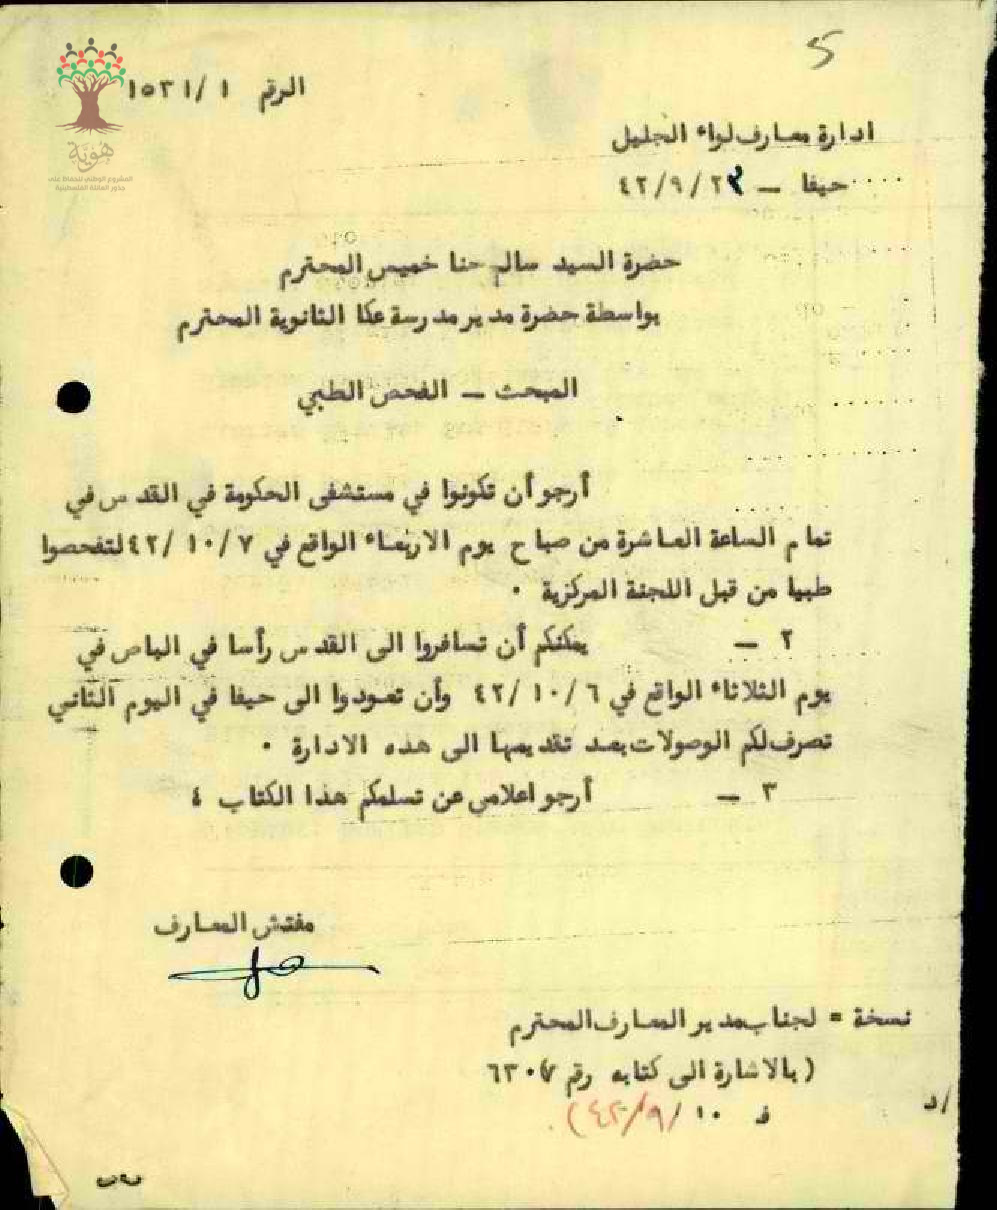 5
الرقم ١٥٣١/١
هوية
المشروع الوطني للحفاظ على
جذور العائلة الفلسطينية
ادارة معارف لواء الجليل
حيفا – ٤٢/٩/٢٣
حضرة السيد سالم حنا خميس المحترم
بواسطة حضرة مدير مدرسة عكا الثانوية المحترم
المبحث – الفحص الطبي
أرجو أن تكونوا في مستشفى الحكومة في القدس في
تمام الساعة العاشرة من صباح يوم الاربعاء الواقع في ٤٢/١٠/٧ لتفحصوا
طبيا من قبل اللجنة المركزية ٠
٢ – يمكنكم أن تسافروا الى القدس رأسا في الباص في
يوم الثلاثاء الواقع في ٤٢/١٠/٦ وأن تعودوا الى حيفا في اليوم الثاني
تصرف لكم الوصولات بعد تقديمها الى هذه الادارة ٠
٣ – أرجو اعلامي عن تسلمكم هذا الكتاب ٤
مفتش المعارف
نسخة = لجناب مدير المعارف المحترم
(بالاشارة الى كتابه رقم
ف ٤٢/٩/١٠)
/د